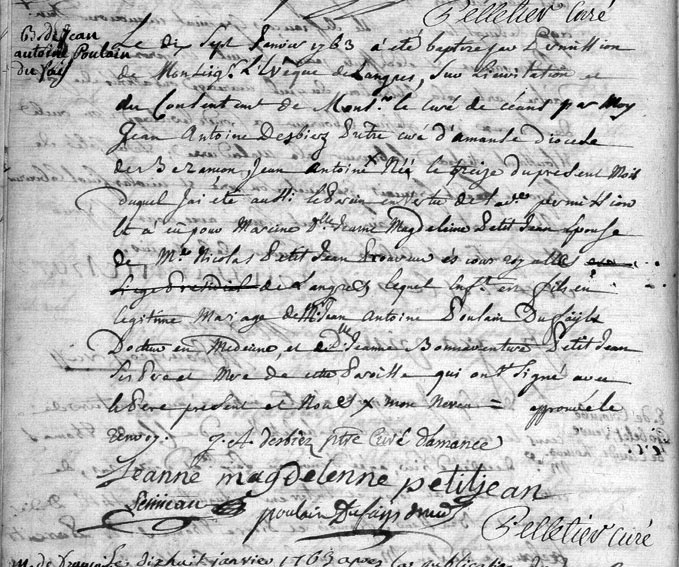 Pelletier Curé
B. de Jean
antoine Poulain
du fay
Le dix Sept Janvier 1763 a été baptizé par Permission
de Monseigr. L'Evêque de Langres, Sur L'invitation et
du Consentement de Monsr. le curé de céans par Moy
Jean Antoine Desbiez Prtre curé d'amance Diocese
de Bezançon, Jean Antoine x Né le treize du present Mois
duquel J'ai eté aussi le Parain en vertu de permission
et a eu pour Maraine Dlle Jeanne Magdeleine Petit Jean Epouse
de Mre Nicolas Petit Jean Procureur és cour royalles
de Langres lequel Enft. est fils en
legitime Mariage de Mr Jean Antoine Poulain Dufay
Docteur en Medecine, et de De Jeanne Bonnaventure Petit Jean
Ses Pere et Mere de cette Paroisse qui ont Signé avec
le Pere present et Nous x mon Neveu = approuvé le
renvoy. J A desbiez ptre Curé damance
Jeanne magdelenne petitjean
poulain Dufay
Pelletier curé
dixhuit janvier 1763 apres la publication